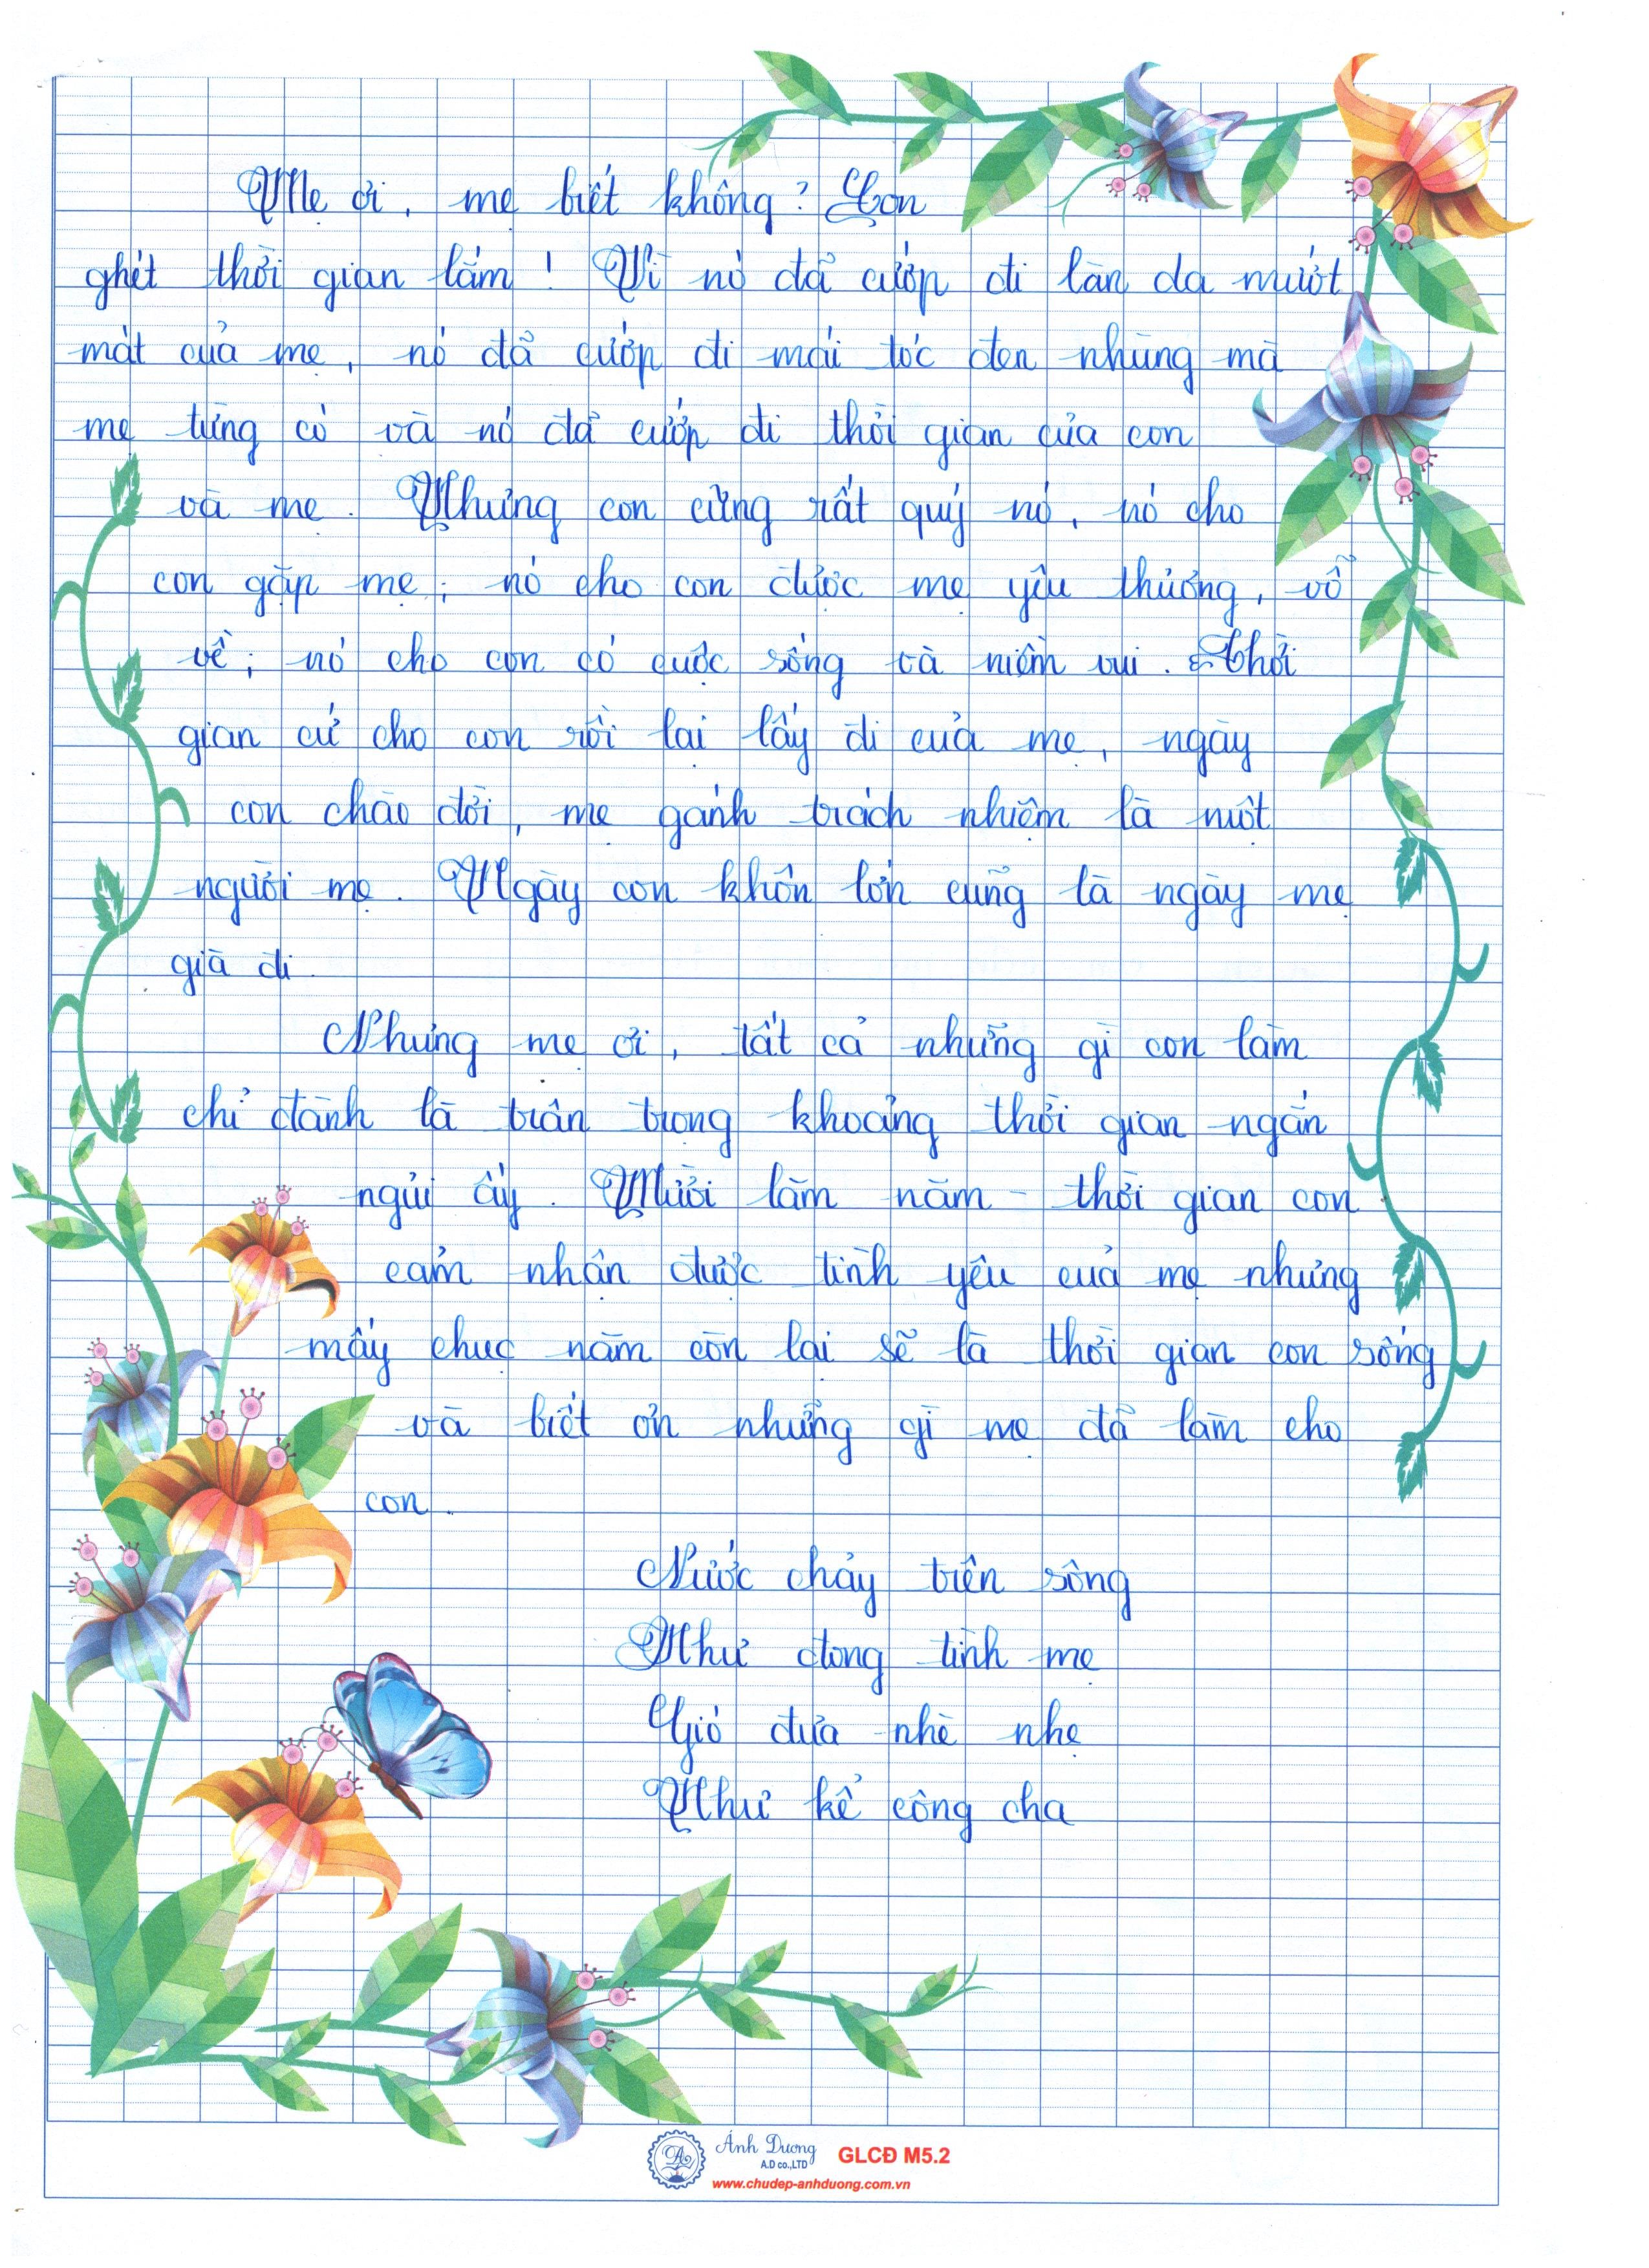 Mẹ ơi, mẹ biết không? Con
ghét thời gian lắm! Vì nó đã cướp đi làn da mướt
mát của mẹ, nó đã cướp đi mái tóc đen nhũng mà
mẹ từng có và nó đã cướp đi thời gian của con
và mẹ. Nhưng con cũng rất quý nó, nó cho
con gặp mẹ; nó cho con được mẹ yêu thương, vỗ
về; nó cho con có cuộc sống và niềm vui. Thời
gian cứ cho con rồi lại lấy đi của mẹ, ngày
con chào đời, mẹ gánh trách nhiệm là một
người mẹ. Ngày con khôn lớn cũng là ngày mẹ
già đi.
Nhưng mẹ ơi, tất cả những gì con làm
chỉ đành là trân trọng khoảng thời gian ngắn
ngủi ấy. Mười lăm năm - thời gian con
cảm nhận được tình yêu của mẹ nhưng
mấy chục năm còn lại sẽ là thời gian con sống
và biết ơn những gì mẹ đã làm cho
con.
Nước chảy trên sông
Như dong tình mẹ
Gió đưa nhè nhẹ
Như kể công cha
Ánh Dương
A.D co.,LTD
GLCĐ M5.2
www.chudep-anhduong.com.vn